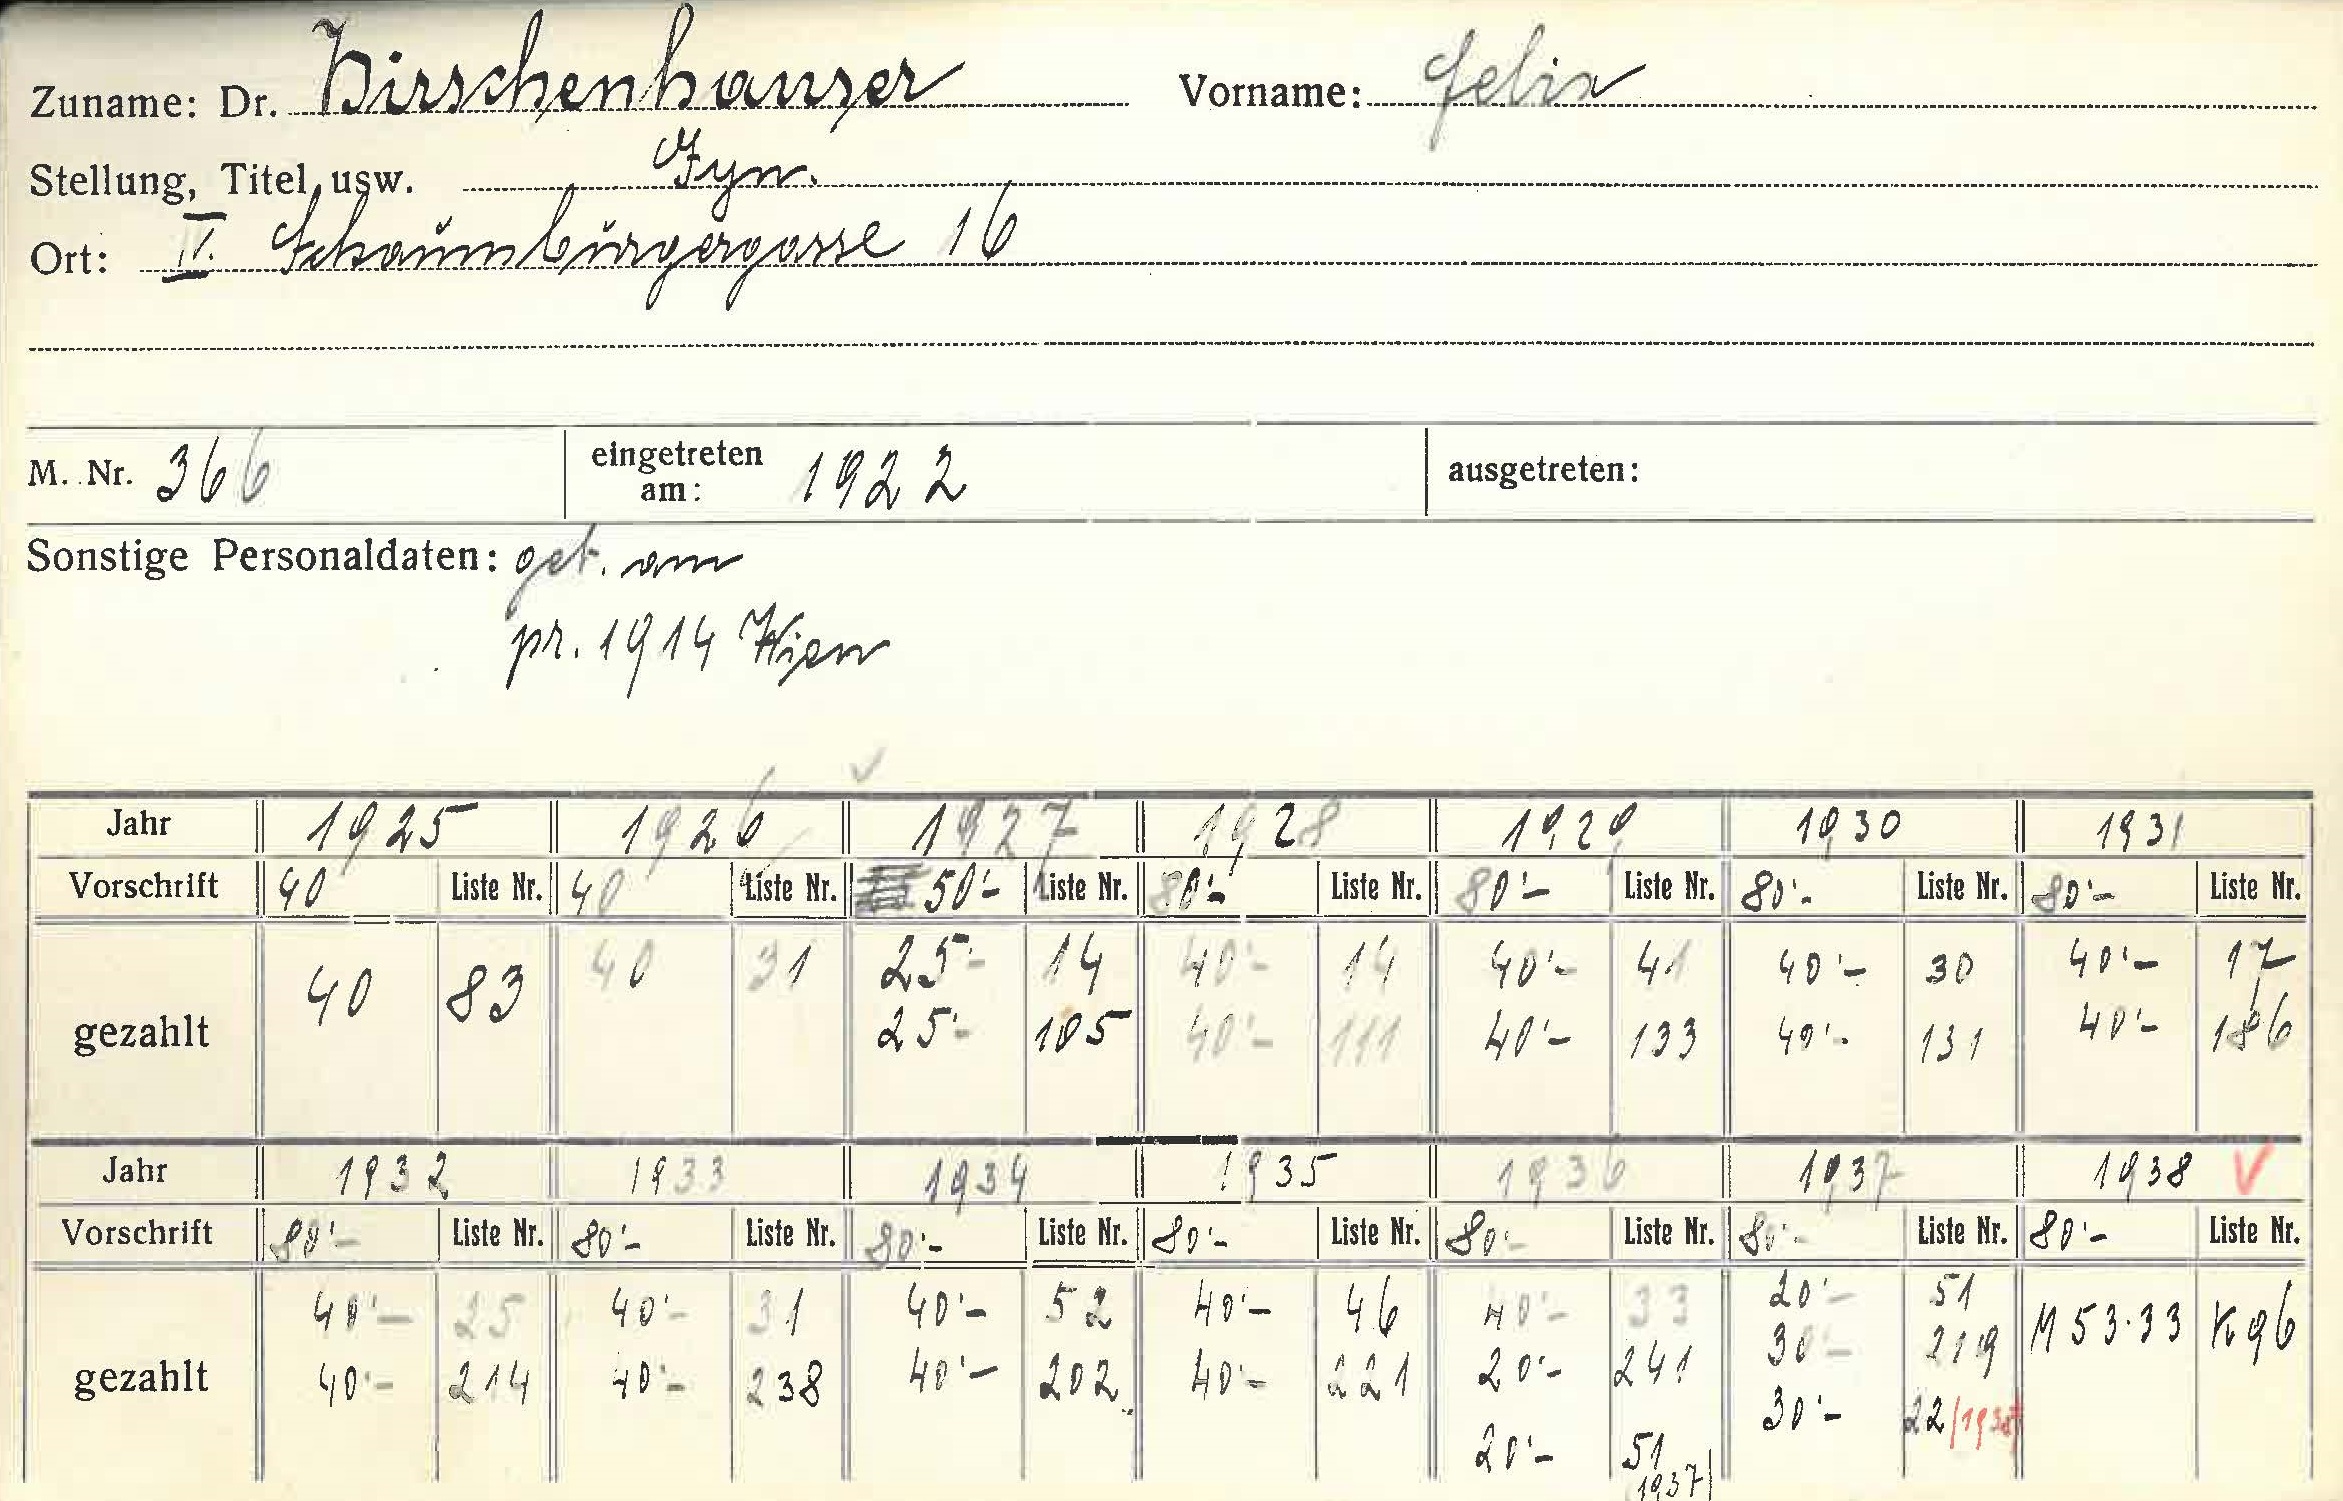 Zuname: Dr. Hirschenhauser Vorname: Felix
Stellung, Titel usw. Gyn.
Ort: IV. Schaumburgergasse 16
M. Nr. 366 eingetreten am: 1922 ausgetreten:
Sonstige Personaldaten: geb. am
pr. 1914 Wien
Jahr 1925 1926 1927 1928 1929 1930 1931
Vorschrift 40 Liste Nr. 40 Liste Nr. 50·- Liste Nr. 80·- Liste Nr. 80·- Liste Nr. 80·- Liste Nr. 80·- Liste Nr.
gezahlt 40 83 40 31 25·- 14 40·- 14 40·- 41 40·- 30 40·- 17
25·- 105 40·- 111 40·- 133 40·- 131 40·- 186
Jahr 1932 1933 1934 1935 1936 1937 1938
Vorschrift 80·- Liste Nr. 80·- Liste Nr. 80·- Liste Nr. 80·- Liste Nr. 80·- Liste Nr. 80·- Liste Nr. 80·- Liste Nr.
40·- 25 40·- 31 40·- 52 40·- 46 40·- 33 20·- 51 M 53·33 K96
gezahlt 40·- 214 40·- 238 40·- 202 40·- 221 20·- 241 30·- 219
20·- 51 30·- 22/1938
1937/